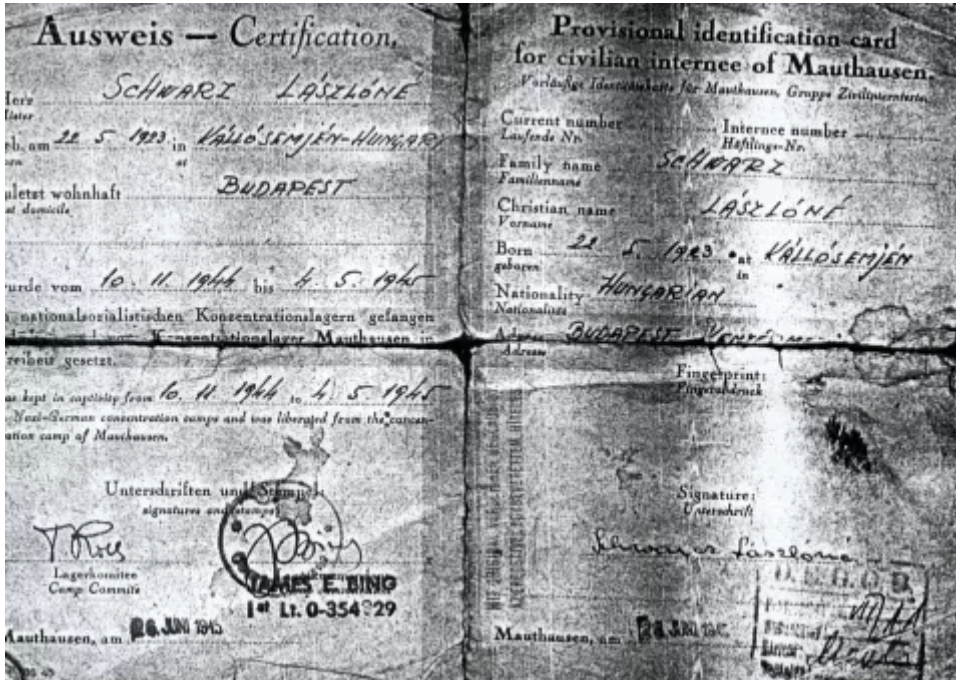 Ausweis — Certification.
Herr SCHWARZ LÁSZLÓNÉ
geb. am 22 5 1923 in KÁLLÓSEMJÉN-HUNGARY
at
zuletzt wohnhaft BUDAPEST
last domicile
wurde vom 10. 11 1944 bis 4. 5. 1945
nationalsozialistischen Konzentrationslagern gefangen
Konzentrationslager Mauthausen in
Freiheit gesetzt.
was kept in captivity from 10. 11 1944 to 4. 5 1945
Nazi-German concentration camps and was liberated from the concen-
tration camp of Mauthausen.
Unterschriften und Stempel:
signatures and stamps
Lagerkomitee
Camp Commite
JAMES E. BING
1st Lt. 0-354 29
Mauthausen, am 26. JUNI 1945
Provisional identification card
for civilian internee of Mauthausen.
Vorläufige Identitätskarte für Mauthausen, Gruppe Zivilinternierte.
Current number Internee number
Laufende Nr. Häftlings-Nr.
Family name SCHWARZ
Familienname
Christian name LÁSZLÓNÉ
Vorname
Born 22 5. 1923 at KÁLLÓSEMJÉN
geboren in
Nationality HUNGARIAN
Nationalität
BUDAPEST
Adresse
Fingerprint:
Fingerabdruck
Signature:
Unterschrift
Schwarz Lászlóné
D.E.G.O.B.
Mauthausen, am